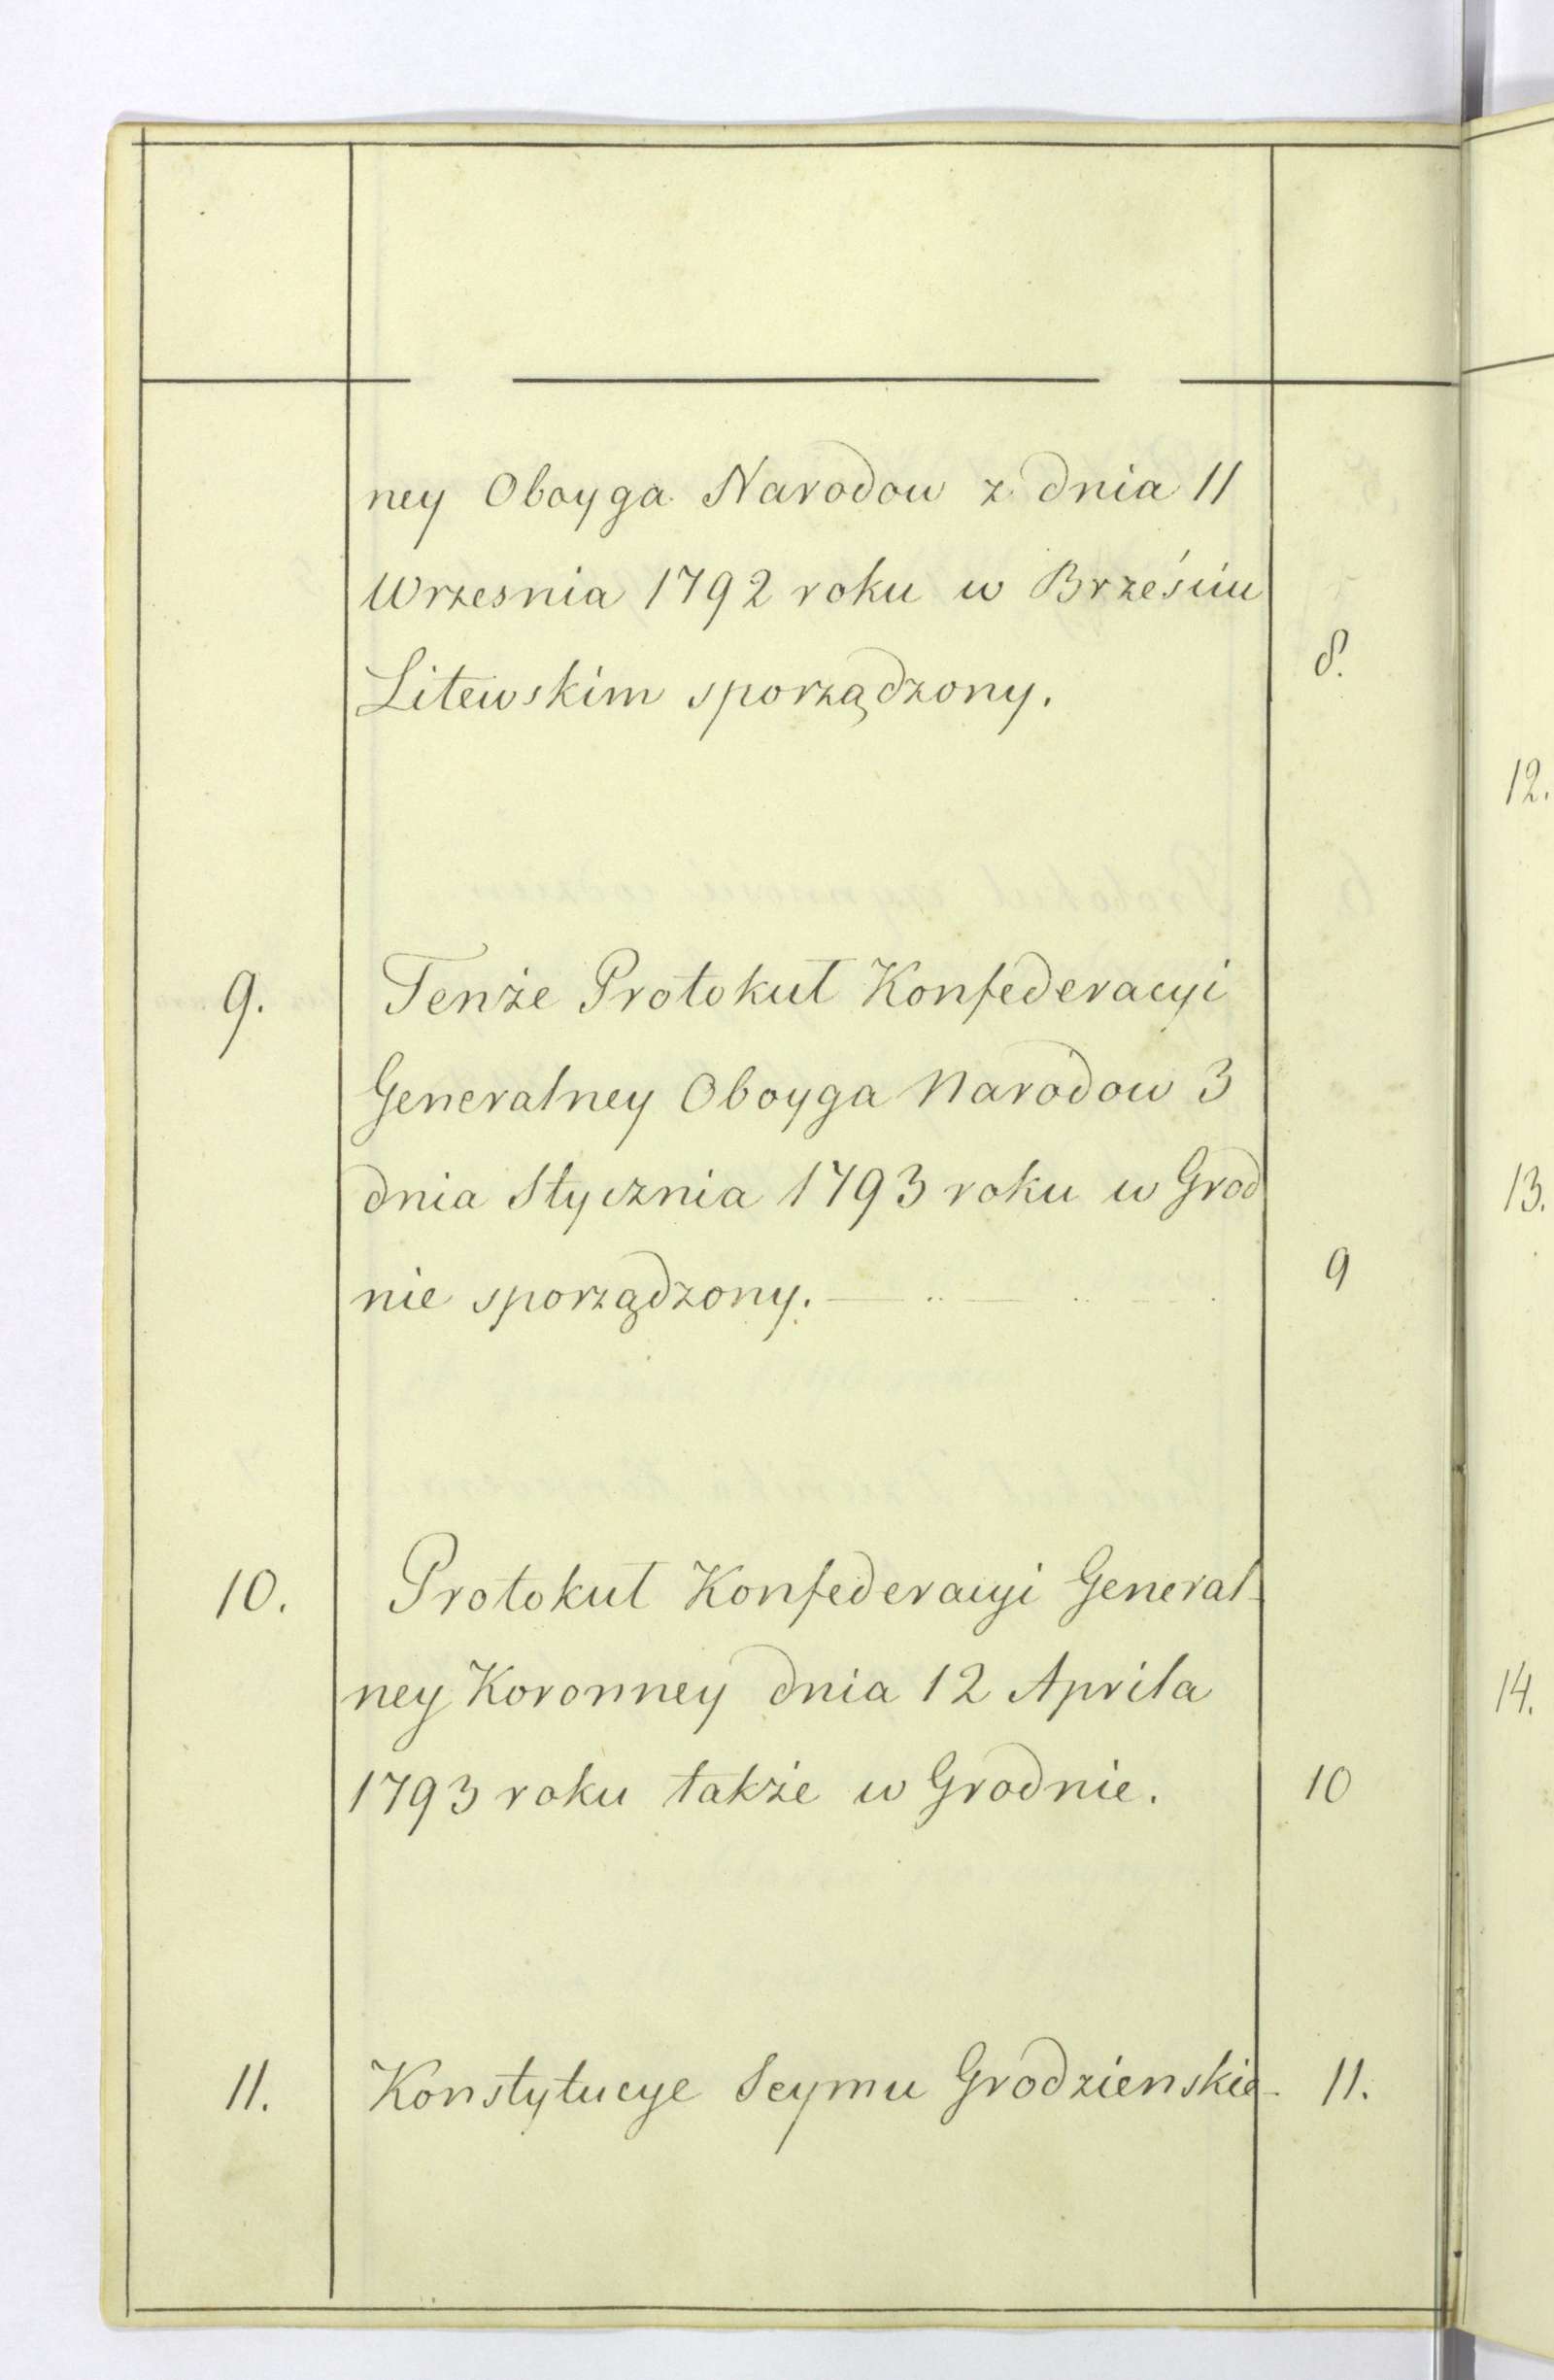 ney Oboyga Narodow z dnia 11
Wrzesnia 1792 roku w Brześciu
Litewskim sporządzony.
8.
9.
Tenże Protokuł Konfederacyi
Generalney Oboyga Narodow 3
dnia Stycznia 1793 roku w Grod
nie sporządzony.
9
10.
Protokuł Konfederacyi General-
ney Koronney dnia 12 Aprila
1793 roku także w Grodnie.
10
11.
Konstytucye Seymu Grodzienskie-
11.
12.
13.
14.